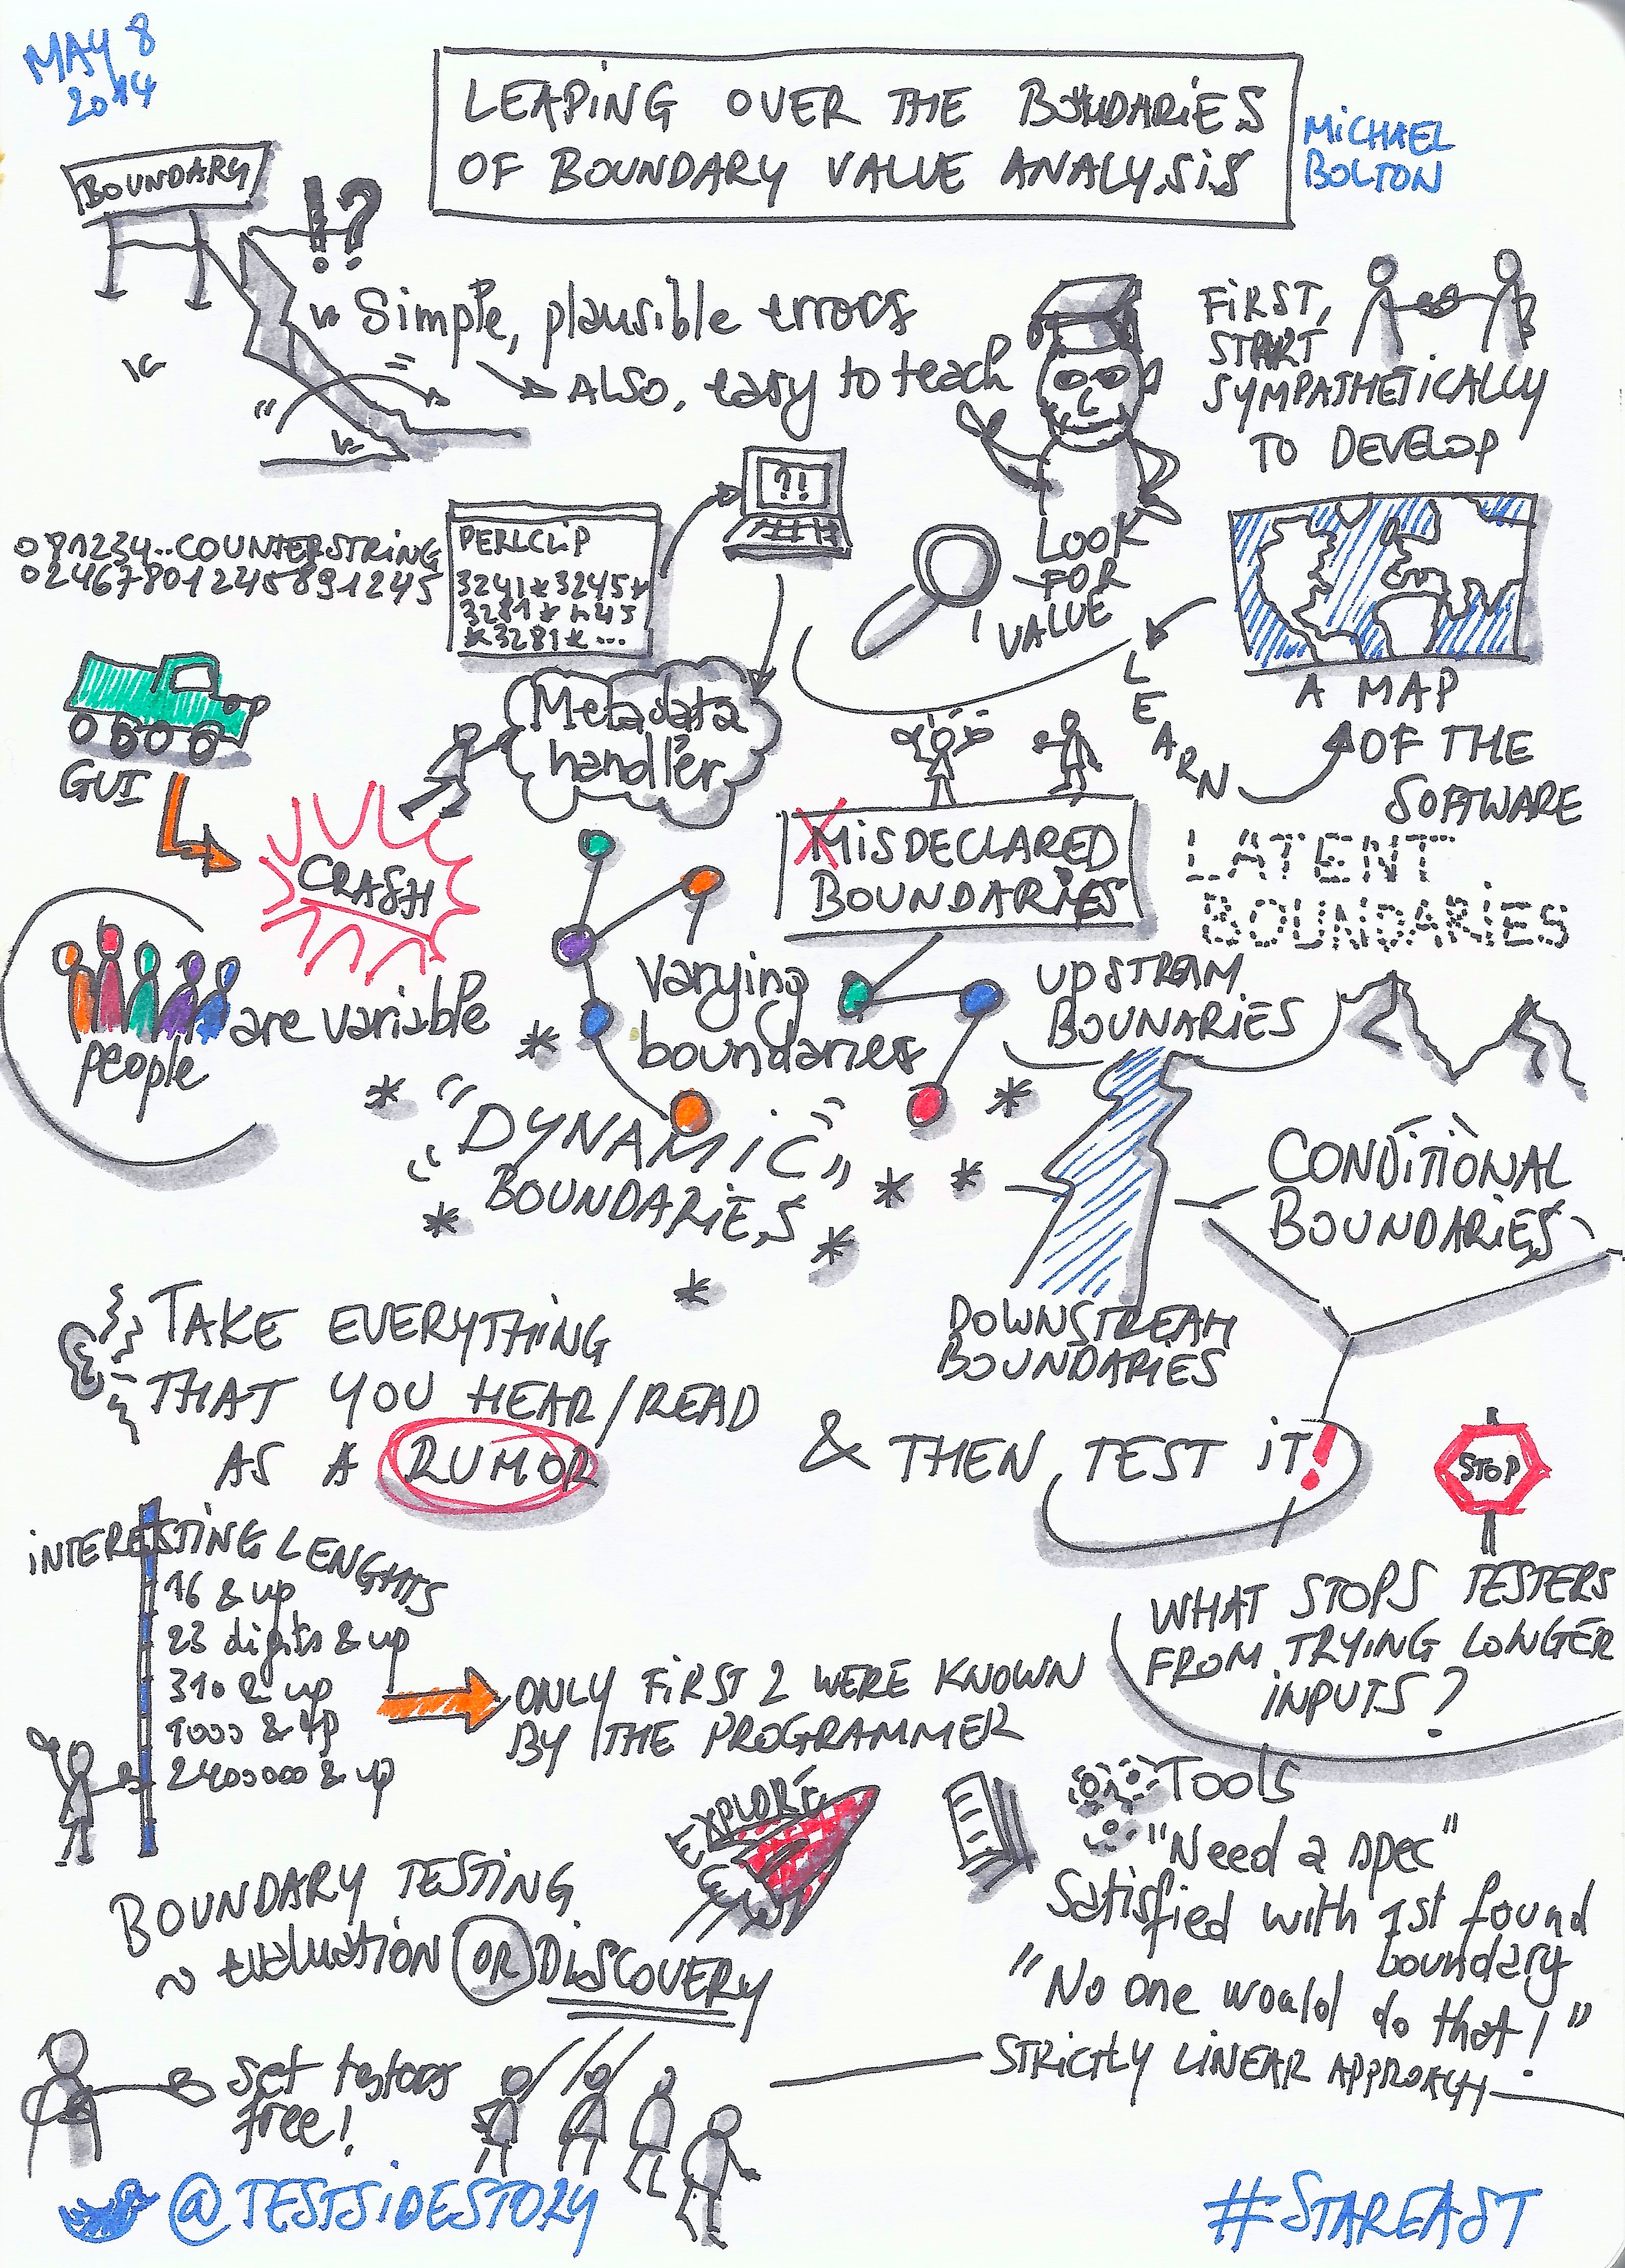 MAY 8
2014
LEAPING OVER THE BOUNDARIES
OF BOUNDARY VALUE ANALYSIS
MICHAEL
BOLTON
BOUNDARY
!?
Simple, plausible errors
ALSO, easy to teach
FIRST,
START
SYMPATHETICALLY
TO DEVELOP
A MAP
OF THE
SOFTWARE
LEARN
LOOK
FOR
VALUE
?!
COUNTERSTRING
PERLCLIP
3241*3245*
*3281*...
Metadata
handler
GUI
CRASH
MISDECLARED
BOUNDARIES
LATENT
BOUNDARIES
people
are variable
varying
boundaries
UPSTREAM
BOUNARIES
"DYNAMIC"
BOUNDARIES
CONDITIONAL
BOUNDARIES
DOWNSTREAM
BOUNDARIES
TAKE EVERYTHING
THAT YOU HEAR/READ
AS A RUMOR
& THEN TEST IT!
STOP
WHAT STOPS TESTERS
FROM TRYING LONGER
INPUTS?
INTERESTING LENGHTS
16 & up
23 digits & up
310 & up
1000 & up
2400000 & up
ONLY FIRST 2 WERE KNOWN
BY THE PROGRAMMER
EXPLORE
BOUNDARY TESTING
~ evaluation OR DISCOVERY
Tools
"Need a spec"
Satisfied with 1st found
boundary
"No one would do that!"
STRICTLY LINEAR APPROACH
set testers
free!
@TESTSIDESTORY
#STAREAST